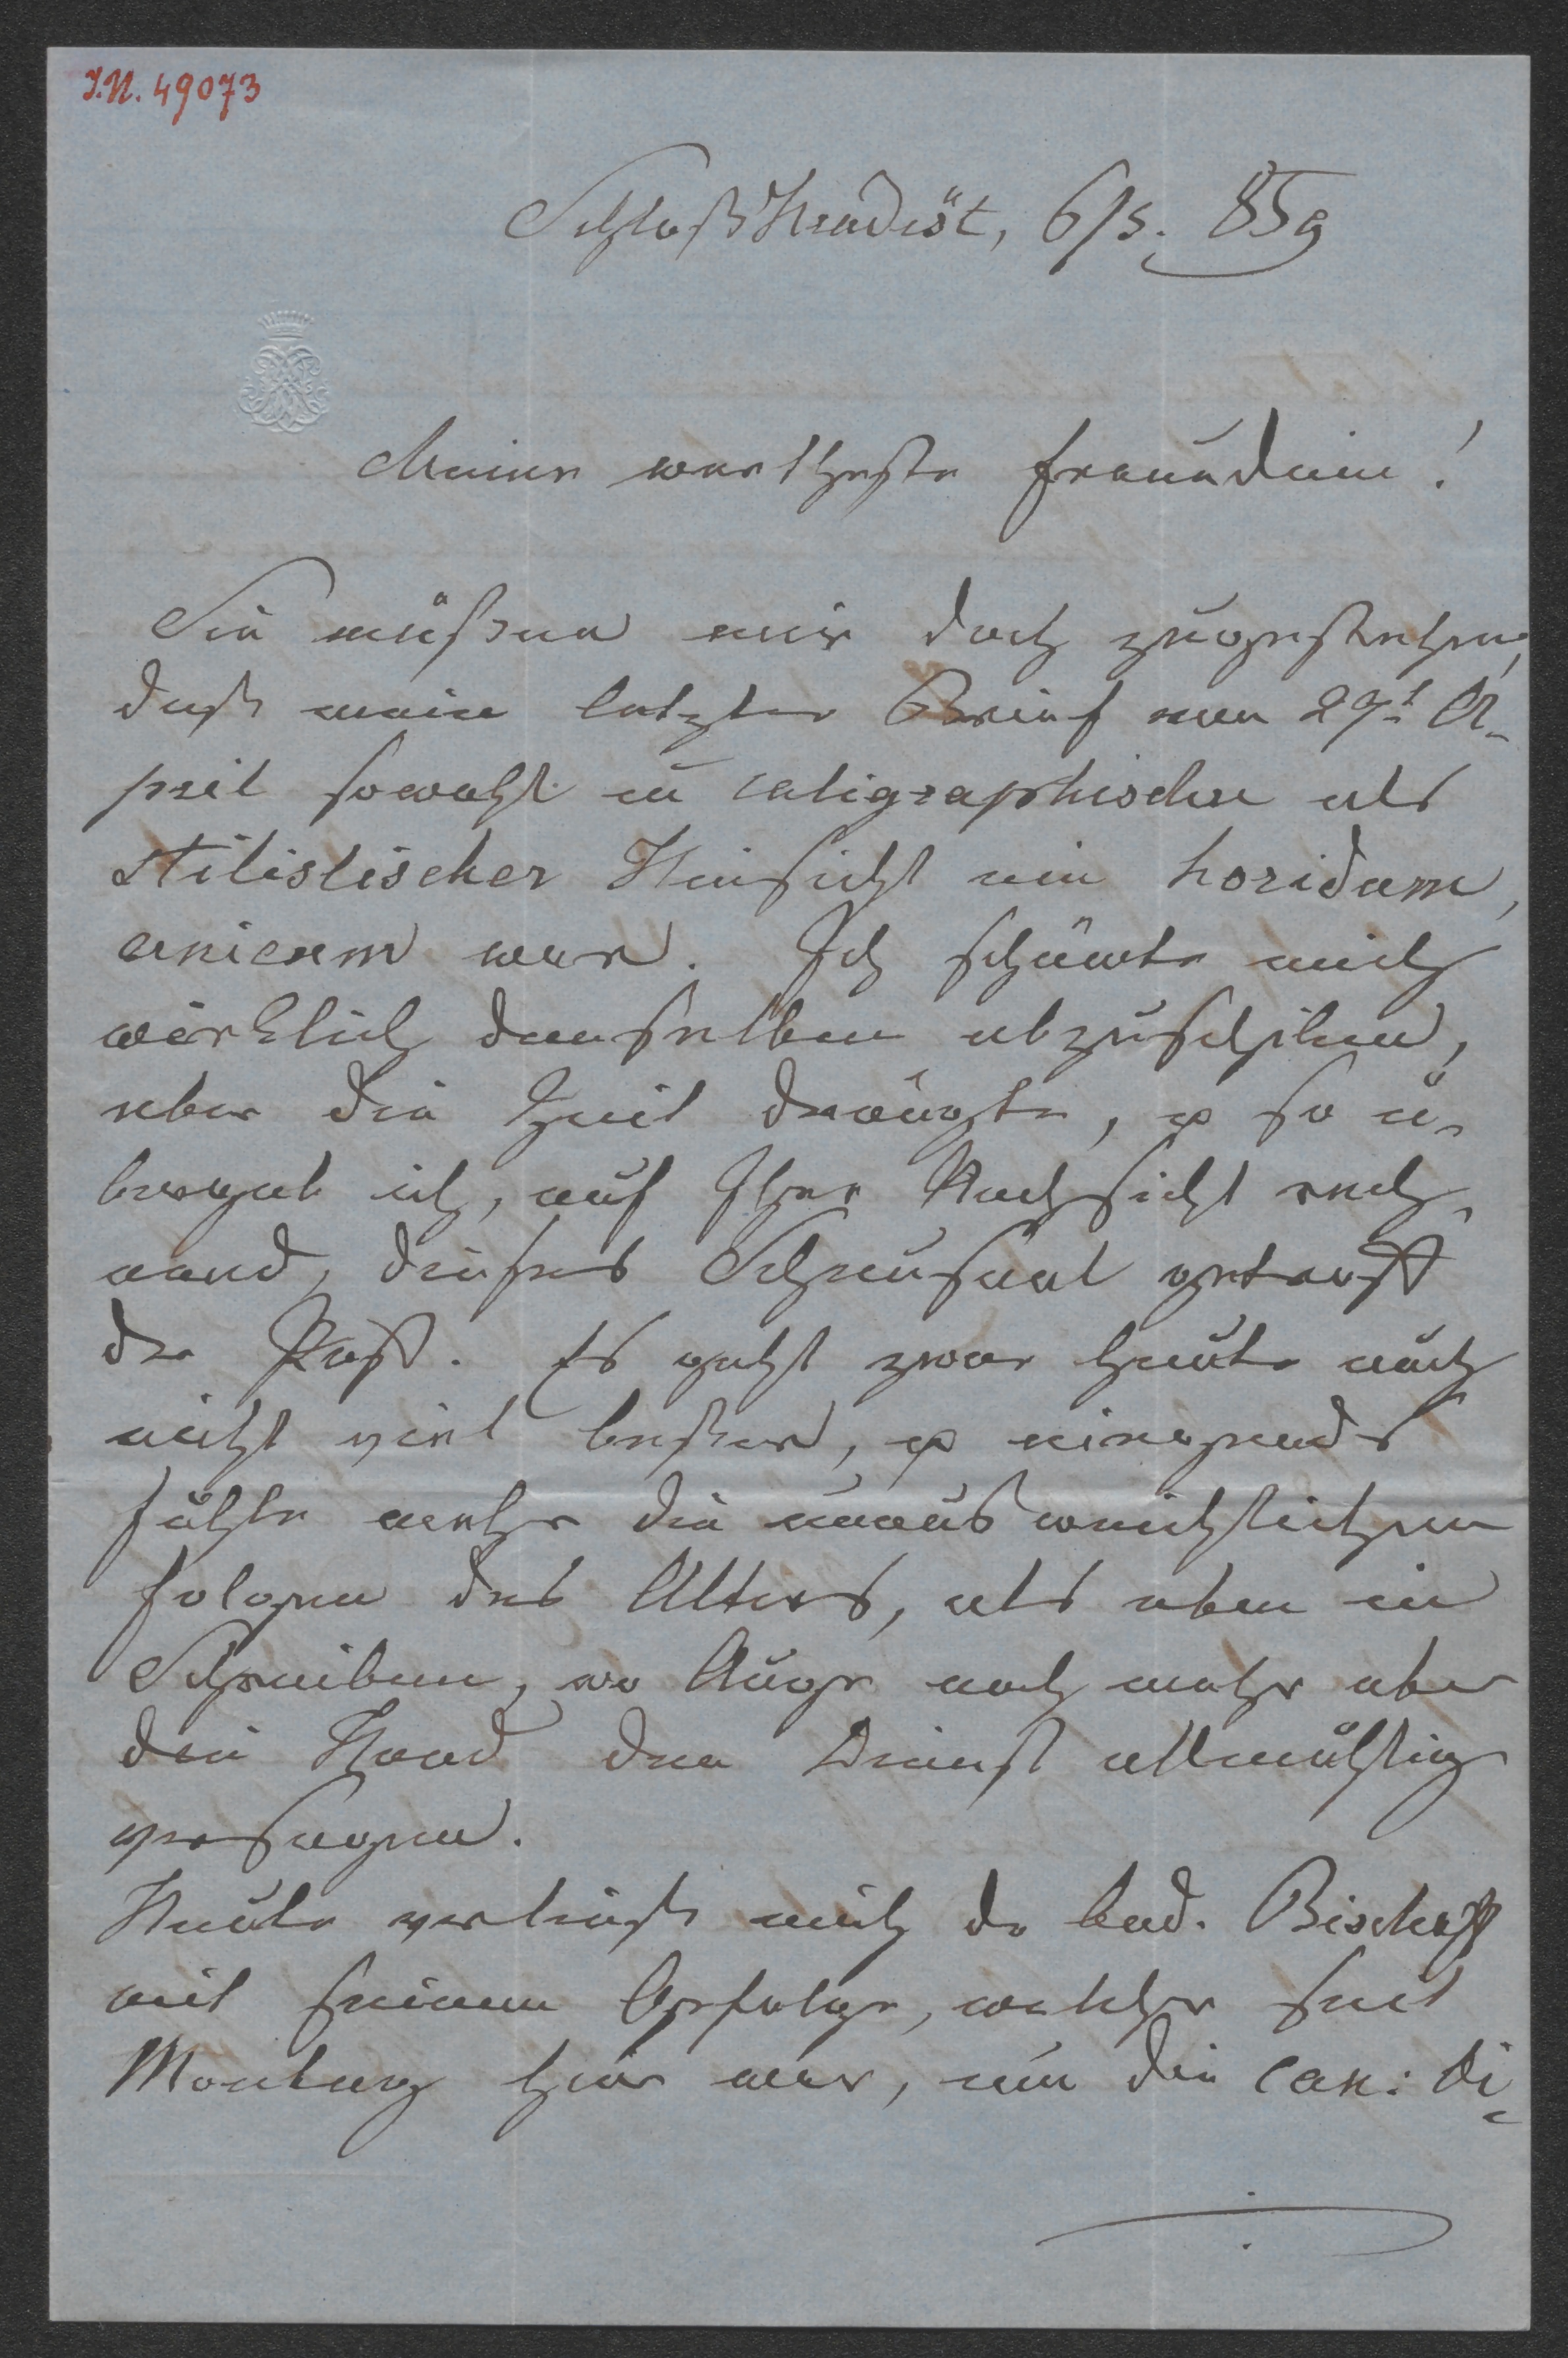 I.N. 49073
Schloß Hradist, 6/5. 859
Meine wertheste Freundin!
Sie müßen mir doch zugestehen,
daß mein letzter Brief vom 29t A-
pril sowohl in caligraphischer als
stilistischer Hinsicht ein horidum,
unicum war. Ich schämte mich
wirklich denselben abzuschiken,
aber die Zeit drängte, & so ü-
bergab ich, auf Ihre Nachsicht rech-
nend, dieses Scheusaal getrost
der Post. Es geht zwar heute auch
nicht viel beßer, & nirgends
fühle mehr die unausweichlichen
Folgen des Alters, als eben im
Schreiben, wo Auge noch mehr aber
die Hand den Dienst allmählig
versagen.
Heute verließ mich der bud. Bischoff
mit seinem Gefolge, welcher seit
Montag hier war, um die can: Vi-